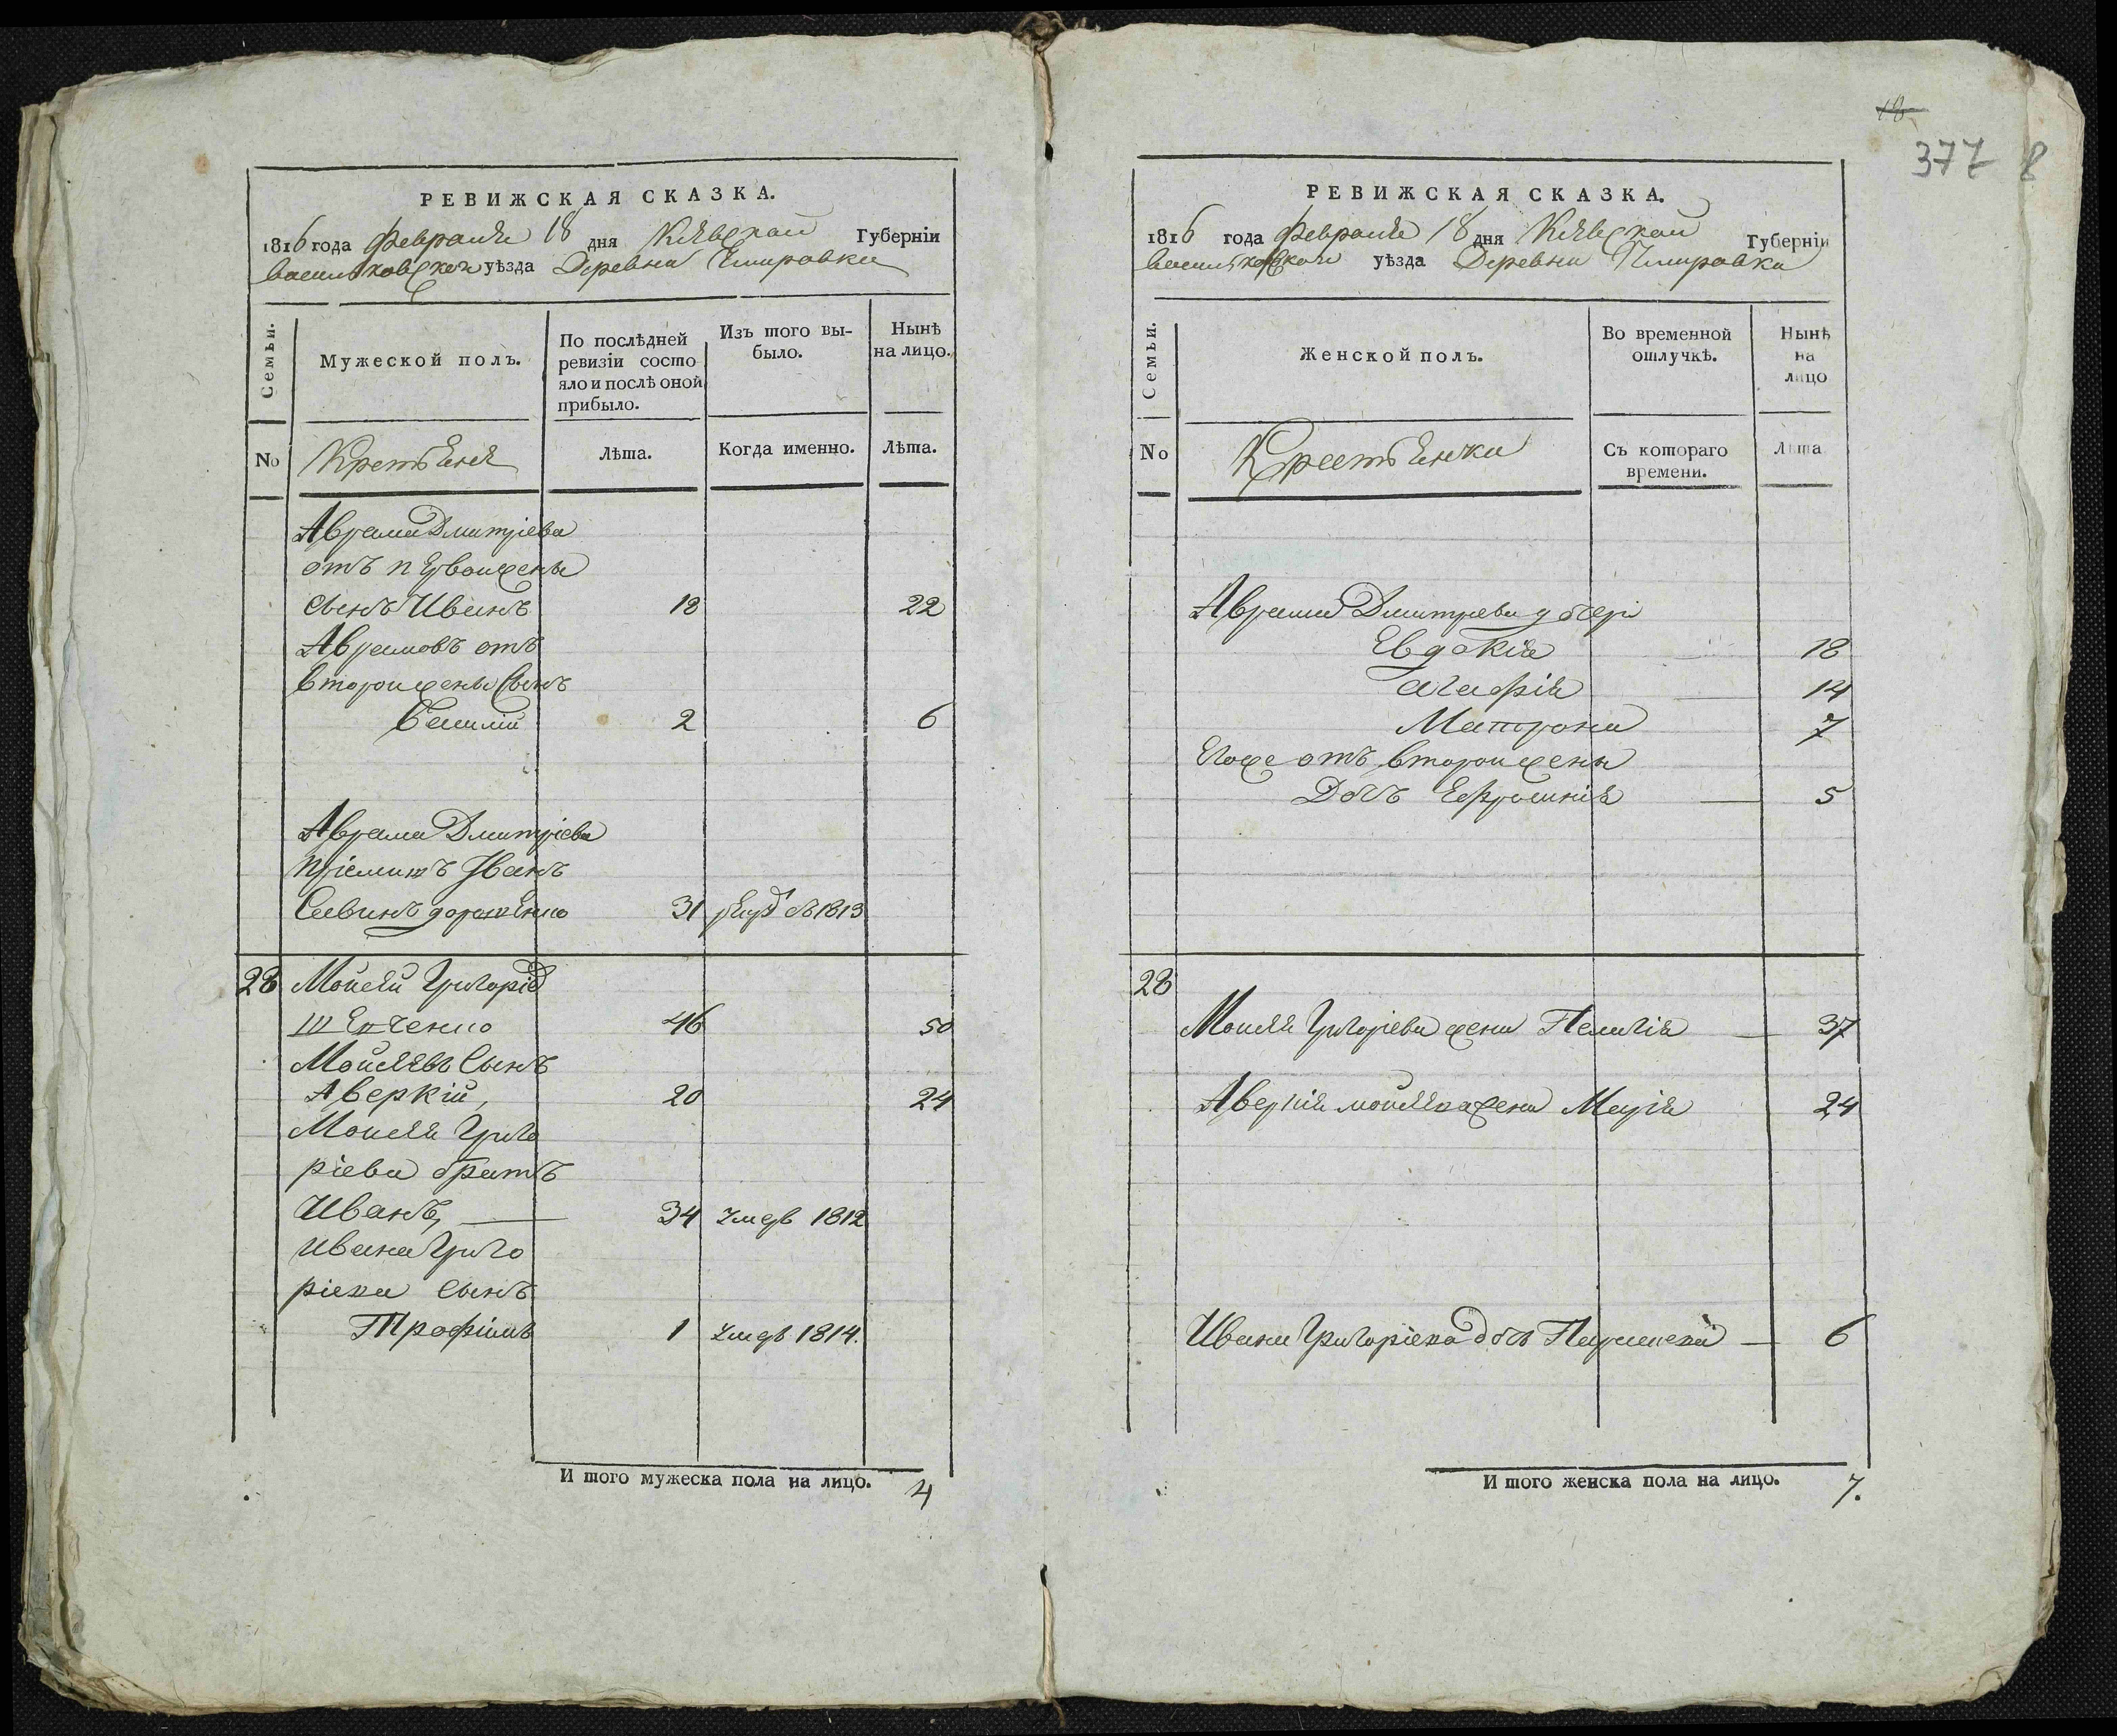 РЕВИЖСКАЯ СКАЗКА.
1816 года Февраля 18 дня Кіевской Губерніи
Васильковской уѣзда Деревни
Семьи.
Мужеской полъ.
По послѣдней ревизіи состо
яло и послѣ оной прибыло.
Изъ того вы-
было.
Нынѣ
на лицо.
№
Крестьяня
Лѣта.
Когда именно.
Лѣта.
Аврама Дмитріева
отъ первой жены
сынъ Иванъ 18 22
Аврамовъ отъ
второй жены сынъ
Василій 2 6
Аврама Дмитріева
пріемишъ Иванъ
Савинъ 31 1813
28 Мойсѣй Григоріев
Шевченко 46 50
Мойсѣевъ Сынъ
Аверкій, 20 24
Мойсѣя Григо
ріева братъ
Иванъ, 34 умеръ 1812
Ивана Григо
ріева сынъ
Трофимъ 1 умеръ 1814.
И того мужеска пола на лицо. 4
18
377 8
РЕВИЖСКАЯ СКАЗКА.
1816 года Февраля 18 дня Кіевской Губерніи
Васильковской уѣзда Деревни
Семьи.
Женской полъ.
Во временной
отлучкѣ.
Нынѣ
на
лицо
№
Крестьянки
Съ котораго
времени.
Лѣта
Аврама Дмитріева дочери
Евдокія 18
Агафія 14
Матрона 7
Егоже отъ второй жены
Дочь Ефросинія 5
28
Мойсѣя Григоріева жена Пелагія 37
Аверкія жена Марія 24
Ивана Григоріева дочь 6
И того женска пола на лицо. 7.